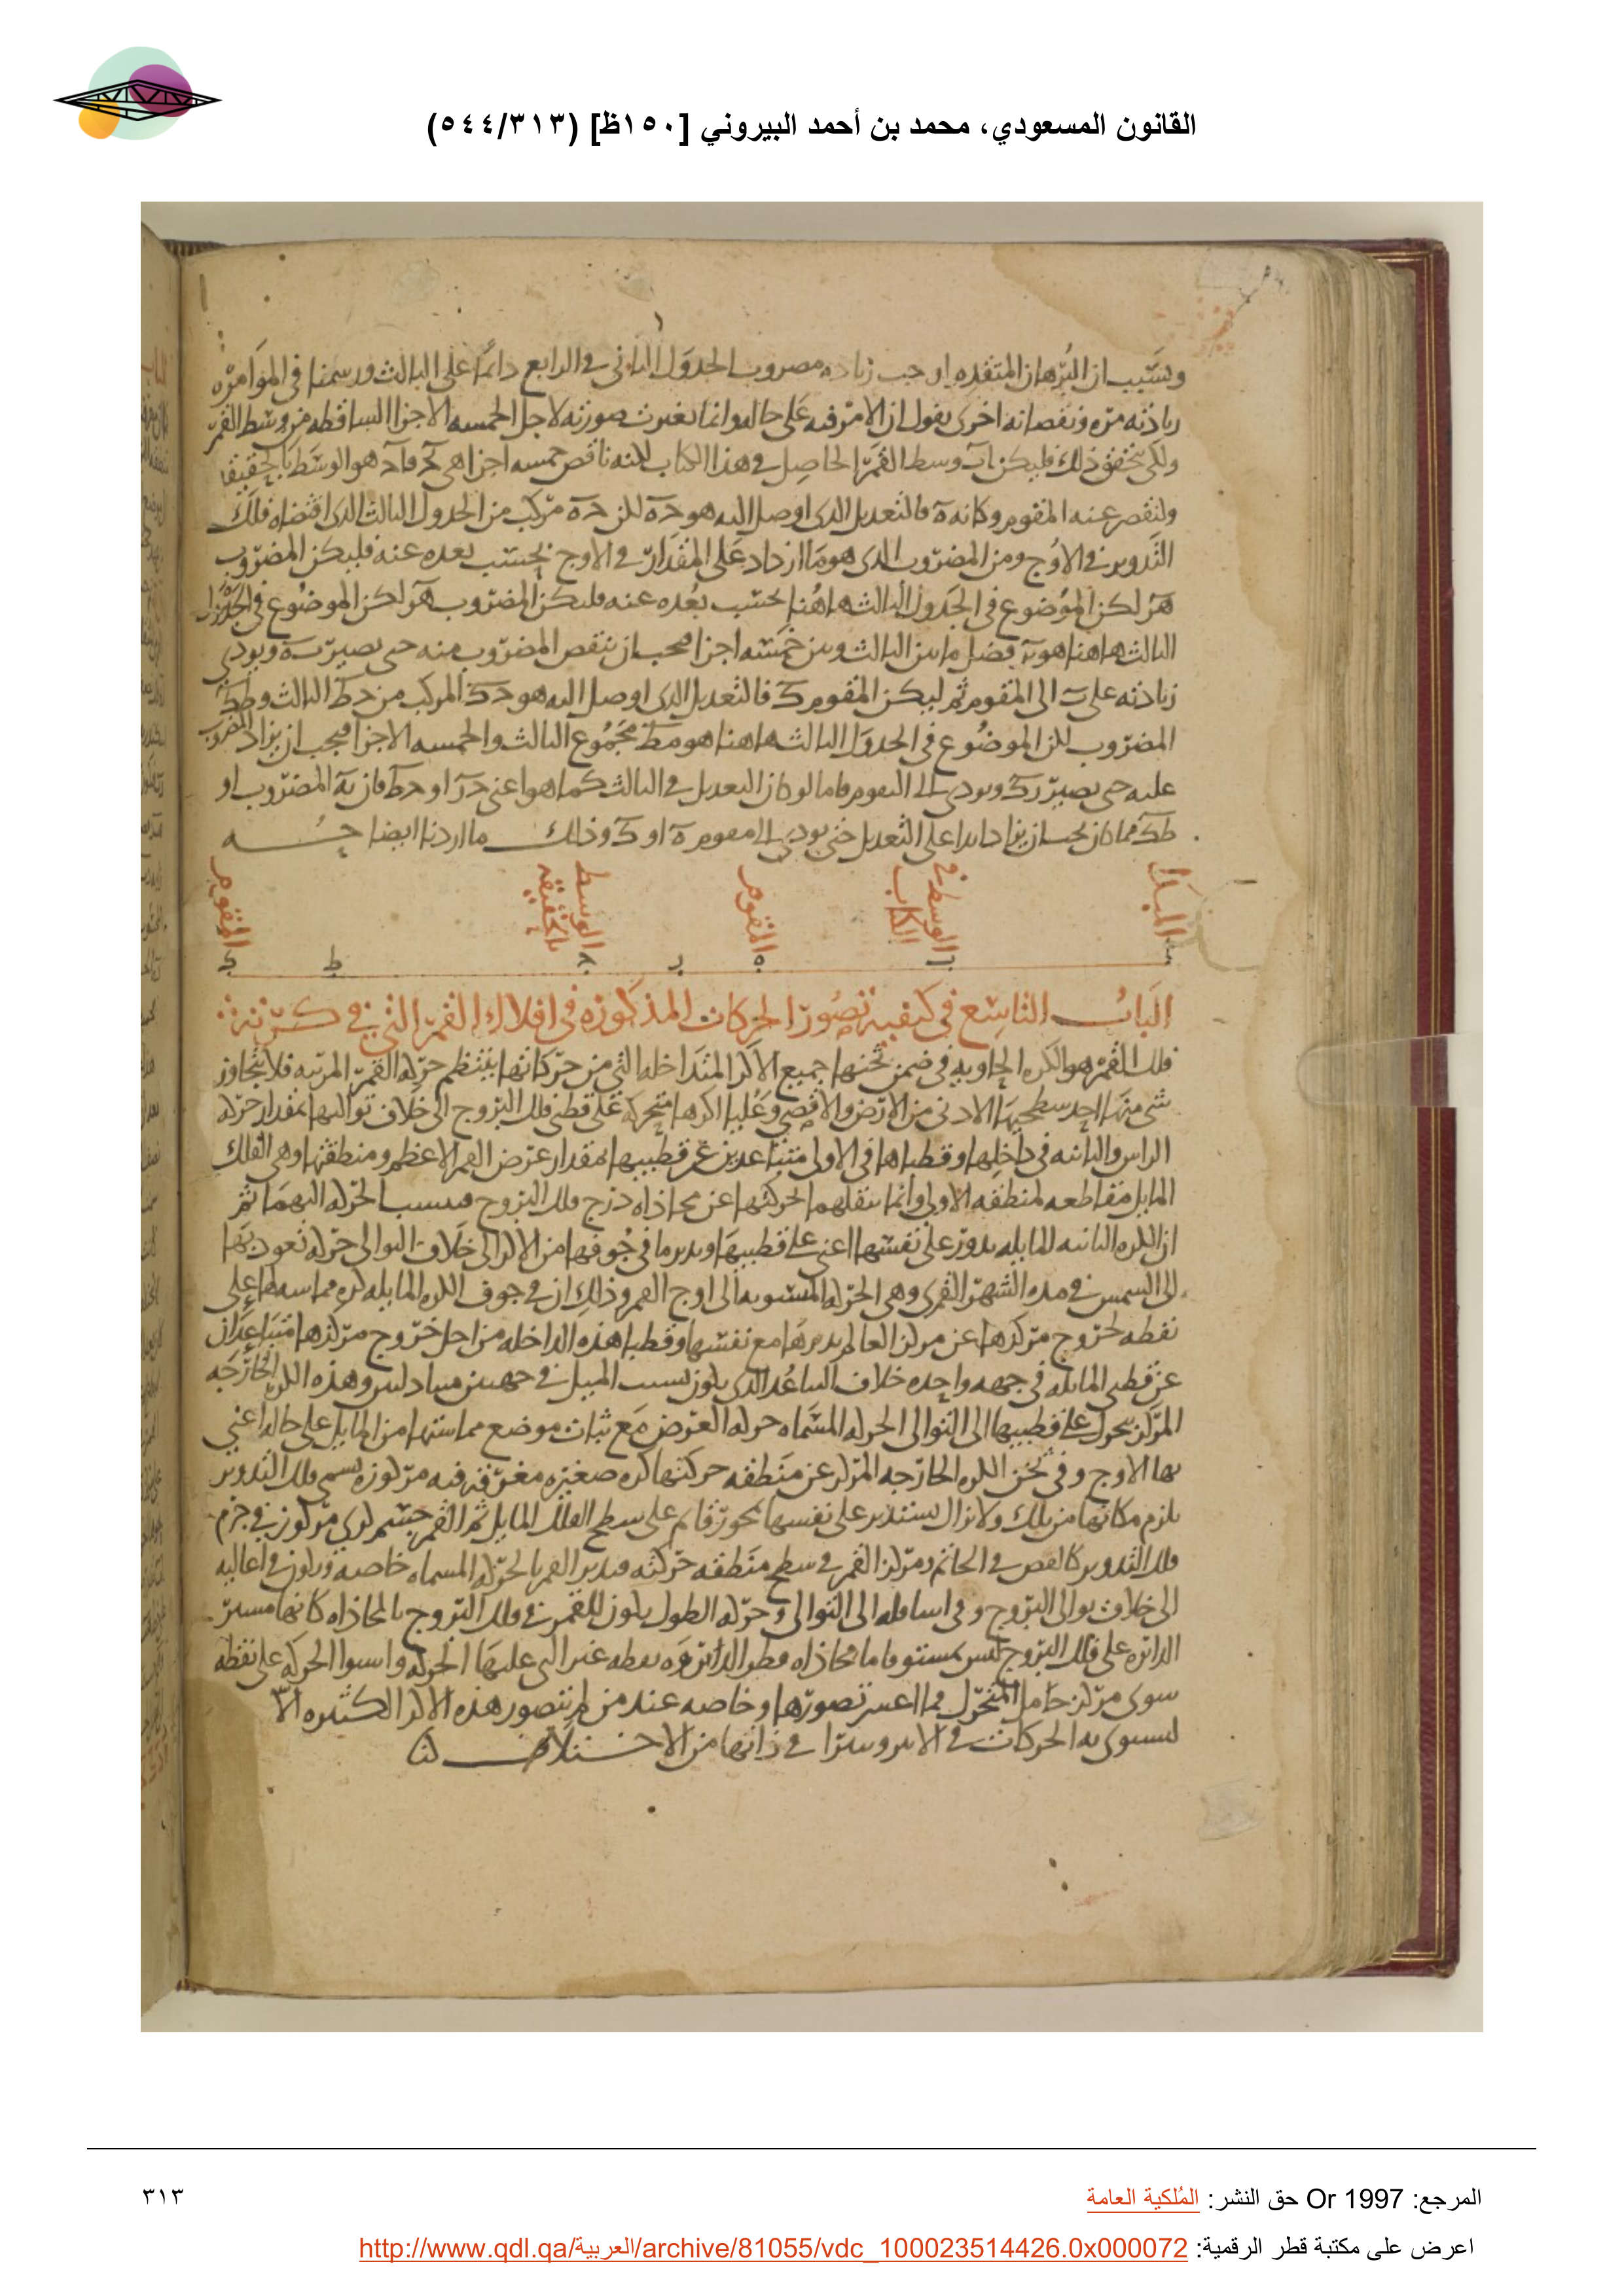 القانون المسعودي، محمد بن أحمد البيروني [١٥٠ظ] (٥٤٤/٣١٣)
المتقدم اوجب زياده مضروب الجدول الثاني في الرابع دائما على الثالث ورسمنا في المؤامره
زيادته مره ونقصانه اخرى يقول ان الامر فيه على حاله وانما تغيرت صورته لاجل الخمسه الاجزا الساقطه من وسط القمر
ولكي يتحقق ذلك فليكن اب وسط القمر الحاصل في هذا الكتاب لانه ناقص خمسه اجزا هي هو الوسط بالحقيقه
ولنقص عنه المقوم وكانه ه فالتعديل الذى اوصل اليه هو حه لكن حه مركب من الجدول الثالث الذى اقتضاه فلك
التدوير في الاوج ومن المضروب الذى هو ما ازداد على المقدار في الاوج بحسب بعده عنه فليكن المضروب
لكن الموضوع في الجدول الثالث هاهنا بحسب بعده عنه فليكن المضروب لكن الموضوع في الجدول
الثالث هاهنا هو فضل ما بين الثالث وبين خمسه اجزا فيجب ان ينقص المضروب منه حتى يصير ويودي
زيادته على الى المقوم ثم ليكن المقوم ك فالتعديل الذى اوصل اليه هو حك المركب من حط الثالث وطك
المضروب لكن الموضوع في الجدول الثالث هاهنا هو مجموع الثالث والخمسه الاجزا فيجب ان يزاد المضروب
عليه حتى يصير ويودي الى المقوم فاما لو كان التعديل في الثالث كما هو اعنى او حط فان المضروب او
طك مما كان يجب ان يزاد ابدا على التعديل حتى يودي الى المقوم ه او ك وذلك ما اردنا ايضاحه
المبدا
الوسط في الكتاب
المقوم
الوسط بالحقيقه
المقوم
ا ب ه ح ط ك
الباب التاسع في كيفية تصور الحركات المذكوره في افلاك القمر التي في كرته
فلك القمر هو الكره الحاويه في ضمن ثخنها جميع الاكر المتداخله التي من حركاتها ينتظم حركه القمر المرتبه فلا يتجاوز
شي منها احد سطحيها الادنى من الارض والاقصى وعليا اكرها متحركه على قطبي فلك البروج الى خلاف تواليها بمقدار حركه
الراس والثانيه في داخلها وقطباها في الاولى متباعدين عن قطبيها بمقدار عرض القمر الاعظم ومنطقتها وهي الفلك
المايل مقاطعه لمنطقه الاولى وانما ينقلهما لحركتها عن محاذاه درج فلك البروج فينسب الحركه اليهما ثم
ان الكره الثانيه المايله يدور على نفسها اعني على قطبيها ويدير ما في جوفها من الاكر الى خلاف التوالي حركه تعود بها
الى الشمس في مده الشهر القمري وهي الحركه المنسوبه الى اوج القمر وذلك ان في جوف الكره المايله كره مماسه اعلى
نقطه لخروج مركزها عن مركز العالم يديرها مع نفسها وقطبا هذه الداخله من اجل خروج مركزها متباعدان
عن قطبي المايله في جهه واحده خلاف التباعد الذى يكون بسبب الميل في جهتين متبادلتين وهذه الكره الخارجه
المركز يتحرك على قطبيها الى التوالي الحركه المسماه حركه العرض مع ثبات موضع مماستها من المايل على حاله اعني
بها الاوج وفي ثخن الكره الخارجه المركز عن منطقه حركتها كره صغيره مغرقه فيه مركوزه يسمى فلك التدوير
يلزم مكانها من تلك ولا يزال يستدير على نفسها بمحور قايم على سطح الفلك المايل ثم القمر جسم كري مركوز في جرم
فلك التدوير كالفص في الخاتم ومركز القمر في سطح منطقه حركته فيدير القمر بالحركه المسماه خاصه ويكون في اعاليه
الى خلاف توالي البروج وفي اسافله الى التوالي وحركه الطول يكون للقمر في فلك البروج بالمحاذاه كانها مسير
الدائره على فلك البروج ليس بمستو فاما محاذاه قطر التدوير نقطه غير التي عليها الحركه واستوا الحركه على نقطه
سوى مركز حامل المتحرك فما اعسر تصورها وخاصه عند من لم يتصور هذه الاكر الكثيره الا
ليستوي به الحركات في الاثير ويتبرا في ذاتها من الاختلاف
المرجع: Or 1997 حق النشر: المُلكية العامة
٣١٣
اعرض على مكتبة قطر الرقمية: http://www.qdl.qa/العربية/archive/81055/vdc_100023514426.0x000072